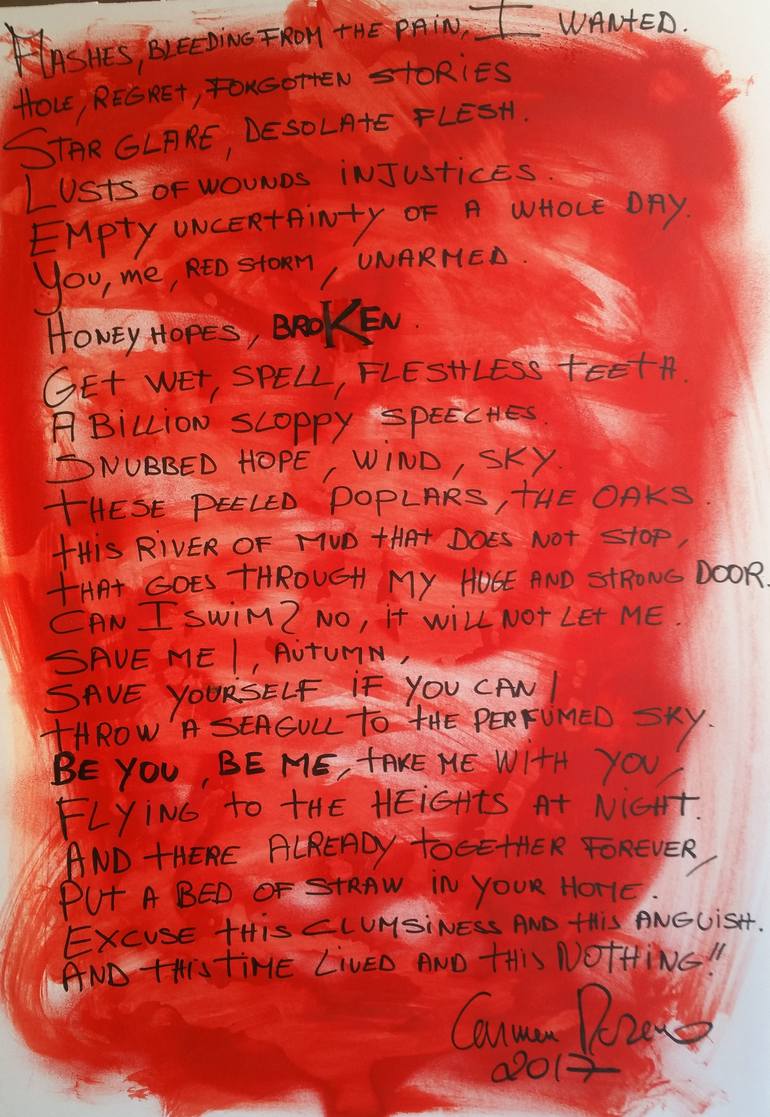 FLASHES, BLEEDING FROM THE PAIN, I WANTED.
HOLE, REGRET, FORGOTTEN STORIES
STAR GLARE, DESOLATE FLESH.
LUSTS OF WOUNDS INJUSTICES.
EMPTY UNCERTAINTY OF A WHOLE DAY.
YOU, me, RED STORM, UNARMED.
HONEY HOPES, BROKEN.
GET WET, SPELL, FLESHLESS TEETH.
A BILLION SLOPPY SPEECHES.
SNUBBED HOPE, WIND, SKY.
THESE PEELED POPLARS, THE OAKS.
THIS RIVER OF MUD THAT DOES NOT STOP,
THAT GOES THROUGH MY HUGE AND STRONG DOOR.
CAN I SWIM? NO, IT WILL NOT LET ME.
SAVE ME!, AUTUMN,
SAVE YOURSELF IF YOU CAN!
THROW A SEAGULL TO THE PERFUMED SKY.
BE YOU, BE ME, TAKE ME WITH YOU,
FLYING TO THE HEIGHTS AT NIGHT.
AND THERE ALREADY TOGETHER FOREVER,
PUT A BED OF STRAW IN YOUR HOME.
EXCUSE THIS CLUMSINESS AND THIS ANGUISH.
AND THIS TIME LIVED AND THIS NOTHING!!
Carmen
2017